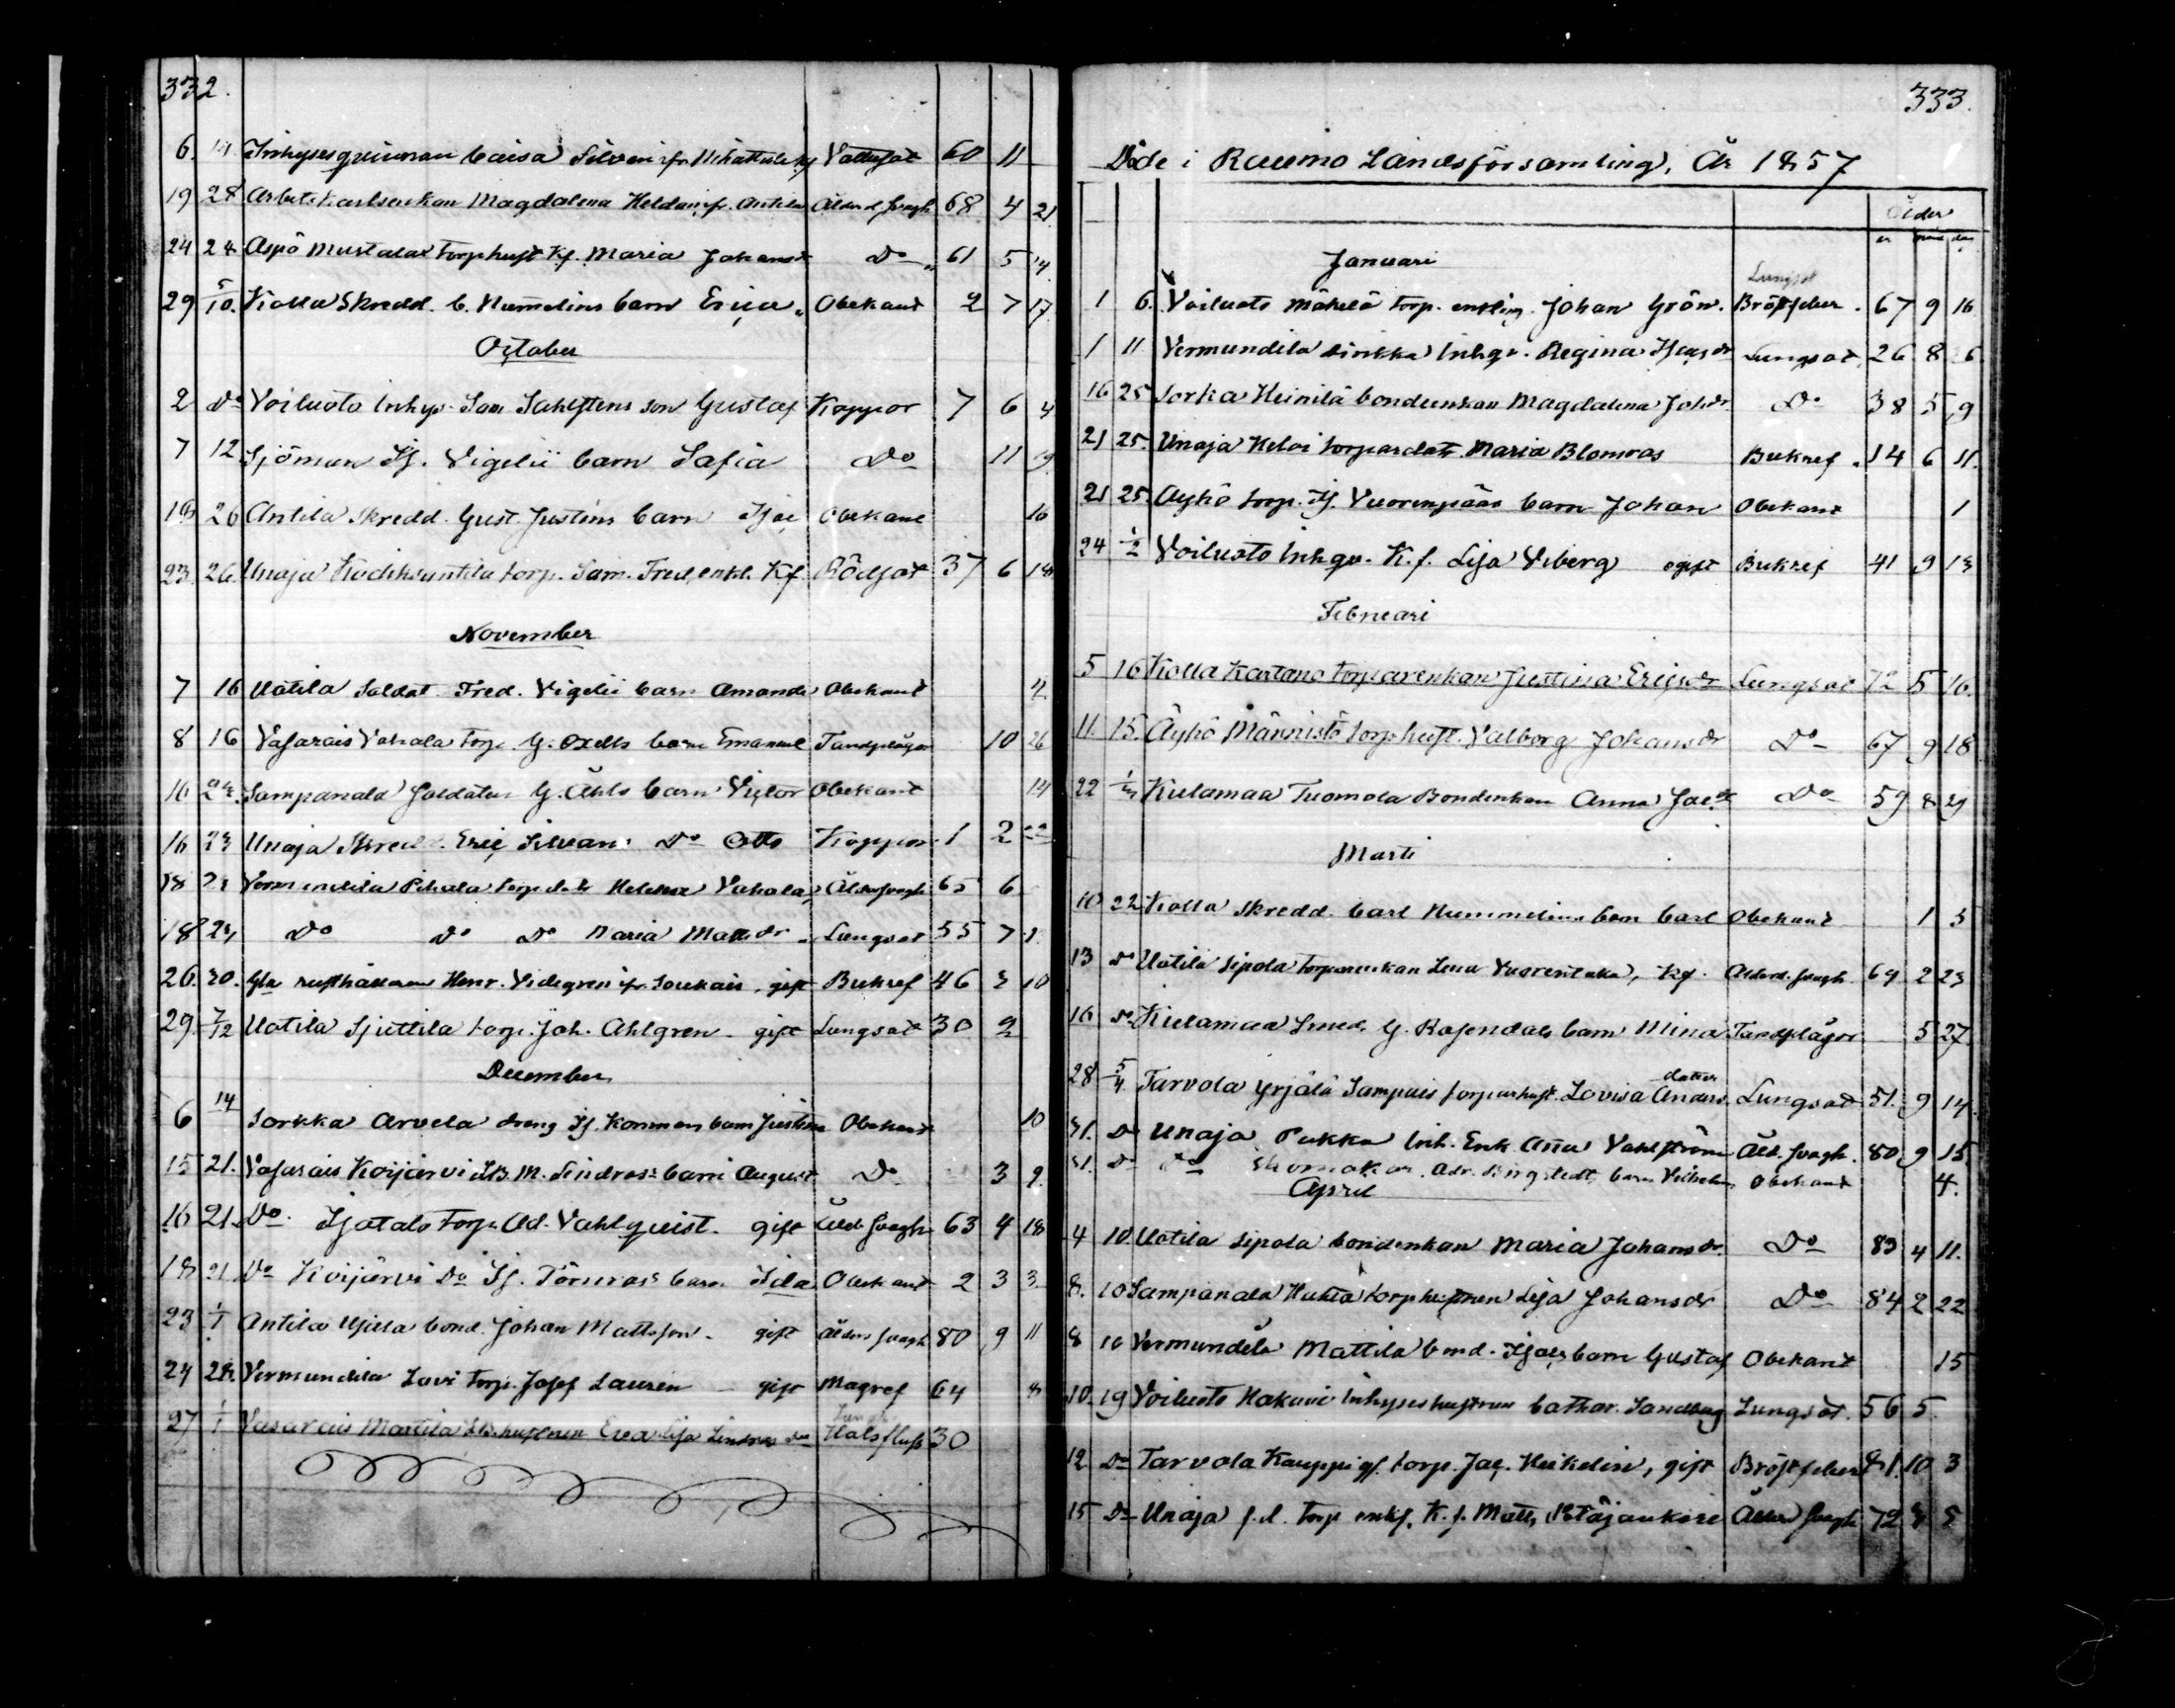 332.
6. Inhysesqvinnan Caisa Silvén ifr. Vattusot 60 11
19 28 Arbetskarlsenkan Magdalena Heldan ifr. Antila Ålderd. svagh 68 4 21
24 28 Äyhö Mustalax torp.hust Kf. Maria Johansdr Do 61 5 14
29 5/10. Kolla Skredd. C. Numelins barn Erica Obekant 2 7 17.
October
2 Do Voiluoto Inhys. Sam Sahlstens son Gustaf Koppor 7 6 4
7 12 Sjöman Is. Vigelii barn Safia Do 11 19
19 26 Antila Skredd. Gust. Justins barn Isac Obekant 16
23. 26. Unaja torp. Sam. Fred. enkl. Kf Rödsot 37 6 18
November
7 16 Uotila Soldat Fred. Vigelii barn Amanda Obekant 4
8 16 Vasarais Vahala torp. G. Oxells barn Emanuel Tandplågor 10 26
16 23. Sampanala Soldaten G. Åhls barn Victor Obekant 14
16 23 Unaja Skredd. Eric Silvans Do Otto Koppor 1 2
18 23 Vermundila Pihala torp. Helena Vahala, Åldersvagh 65 6
18 23 Do Do Do Maria Mattsdr Lungsot 55 7 1
26. 30. Gla rusthållaren Henr. Videgren ifr. Soukais, gift Bukref 46 3 10
29. 7/12 Uotila Sjuttila torp. Joh. Ahlgren gift Lungsot 30 2
December
6 14 Sorkka Arvela dreng Is. Konmans barn Justina Obekant 10
15 21. Vasarais Koijärvi M. Lindros's barn August Do 3 9.
16 21. Do Isotalo torp. Ad. Vahlqvist. gift Åld. svagh 63 4 18
18 21 Do Koijärvi Do Is. Törnros's barn Ida Obekant 2 3 3.
23 1/1 Antila Ujila bond. Johan Mattsson gift Ålders svagh 80 9 11
24 28. Vermundila Lavi torp. Josef Laurén gift Magref 64 8
27 1/1 Vasarais Martila hustrun Eva Lisa Lindros Halsfluss 30
333.
Döde i Raumo Landsförsamling, År 1857
Ålder
år mån dag
Januari
Lungsot
1 6. Voiluoto Mäkelä torp. enkling. Johan Grön. Bröstfeber. 67 9 16
1 11 Vermundila Sinkka Inhqv. Regina Isacsdr Lungsot 26 8 6
16 25 Sorka Heinilä bondeenkan Magdalena Johdr Do 38 5 9
21 25. Unaja Heloi torpardotr. Maria Blomros Bukref 14 6 11.
21 25. Äyhö torp. Is. Vuorenpääs barn Johan Obekant 1
24 1/2 Voiluoto Inhqv. K.f. Lisa Viberg ogift Bukref 41 9 13
Februari
5 16 Kolla Kartano torparenkan Justina Ericsdr Lungsot 72 5 16.
11. 15. Äyhö Männistö torp.hust. Valborg Johansdr Do 67 9 18
22 Kulamaa Tuomola Bondenkan Anna Jacdr Do 59 8 29
Marti
10 22 Kolla Skredd. Carl Nummelins barn Carl Obekant 1 3
13 Do Uotila Sipola torparenkan Lena Vuorentaka, Kf. Ålderd. svagh. 69 2 23
16 Do Kulamaa Smed. G. Rosendals barn Mina Tandplågor 5 27
28 5/4 Tarvola Yrjälä Sampais torparhust. Lovisa Anders dotter Lungsot 51. 9 14.
31. Do Unaja Pukka Inh. Enk. Anna Vahlström Åld. svagh. 80 9 15
31. Do Do Skomakar. Adr. Bergstedt barn Vilhelm Obekant 4.
April
4 10. Uotila Sipola bondenkan Maria Johansdr. Do 83 4 11.
8. 10 Sampanala Huhta torphustrun Lisa Johansdr Do 84 2 22
8 10 Vermundila Mattila bond. Isacs barn Gustaf Obekant 15
10. 19 Voiluoto Hakuni Inhyseshustrun Cathar. Sandberg Lungsot. 56 5.
12 Do Tarvola Kauppi gl. torp. Jac. Heikelin, gift Bröstfeber 81. 10 3
15 Do Unaja f.d. torp enkl. K.f. Matts Ålder svagh 72 8 5